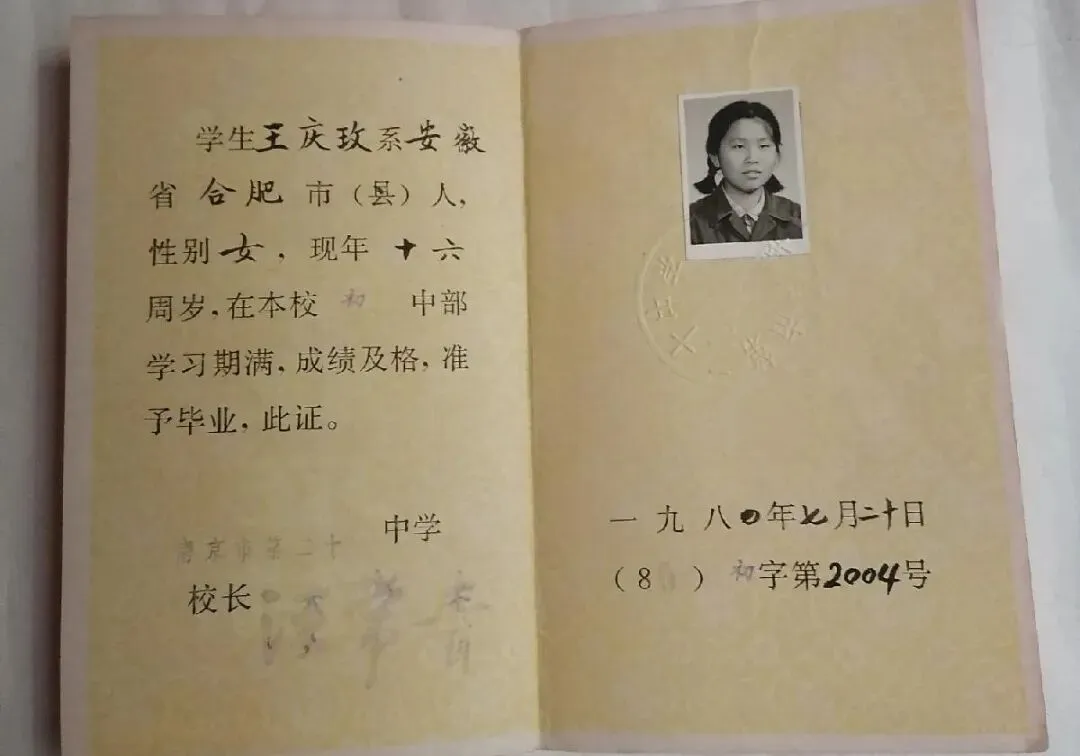 学生王庆玫系安徽
省合肥市（县）人，
性别女，现年十六
周岁，在本校初中部
学习期满，成绩及格，准
予毕业，此证。
南京市第二十
中学
校长
一九八〇年七月二十日
（80）初字第2004号